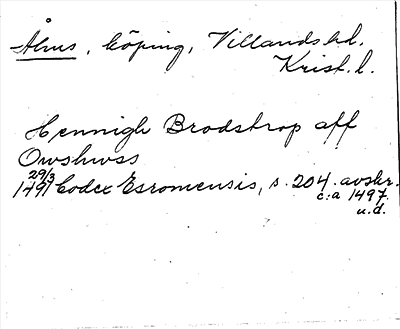 Åhus, köping, Villands hd.
Krist. l.
Hennigh Brodstrop aff
Owshwss
29/3
1491 Codex Esromensis, s. 204. avskr.
c:a 1497.
u.d.